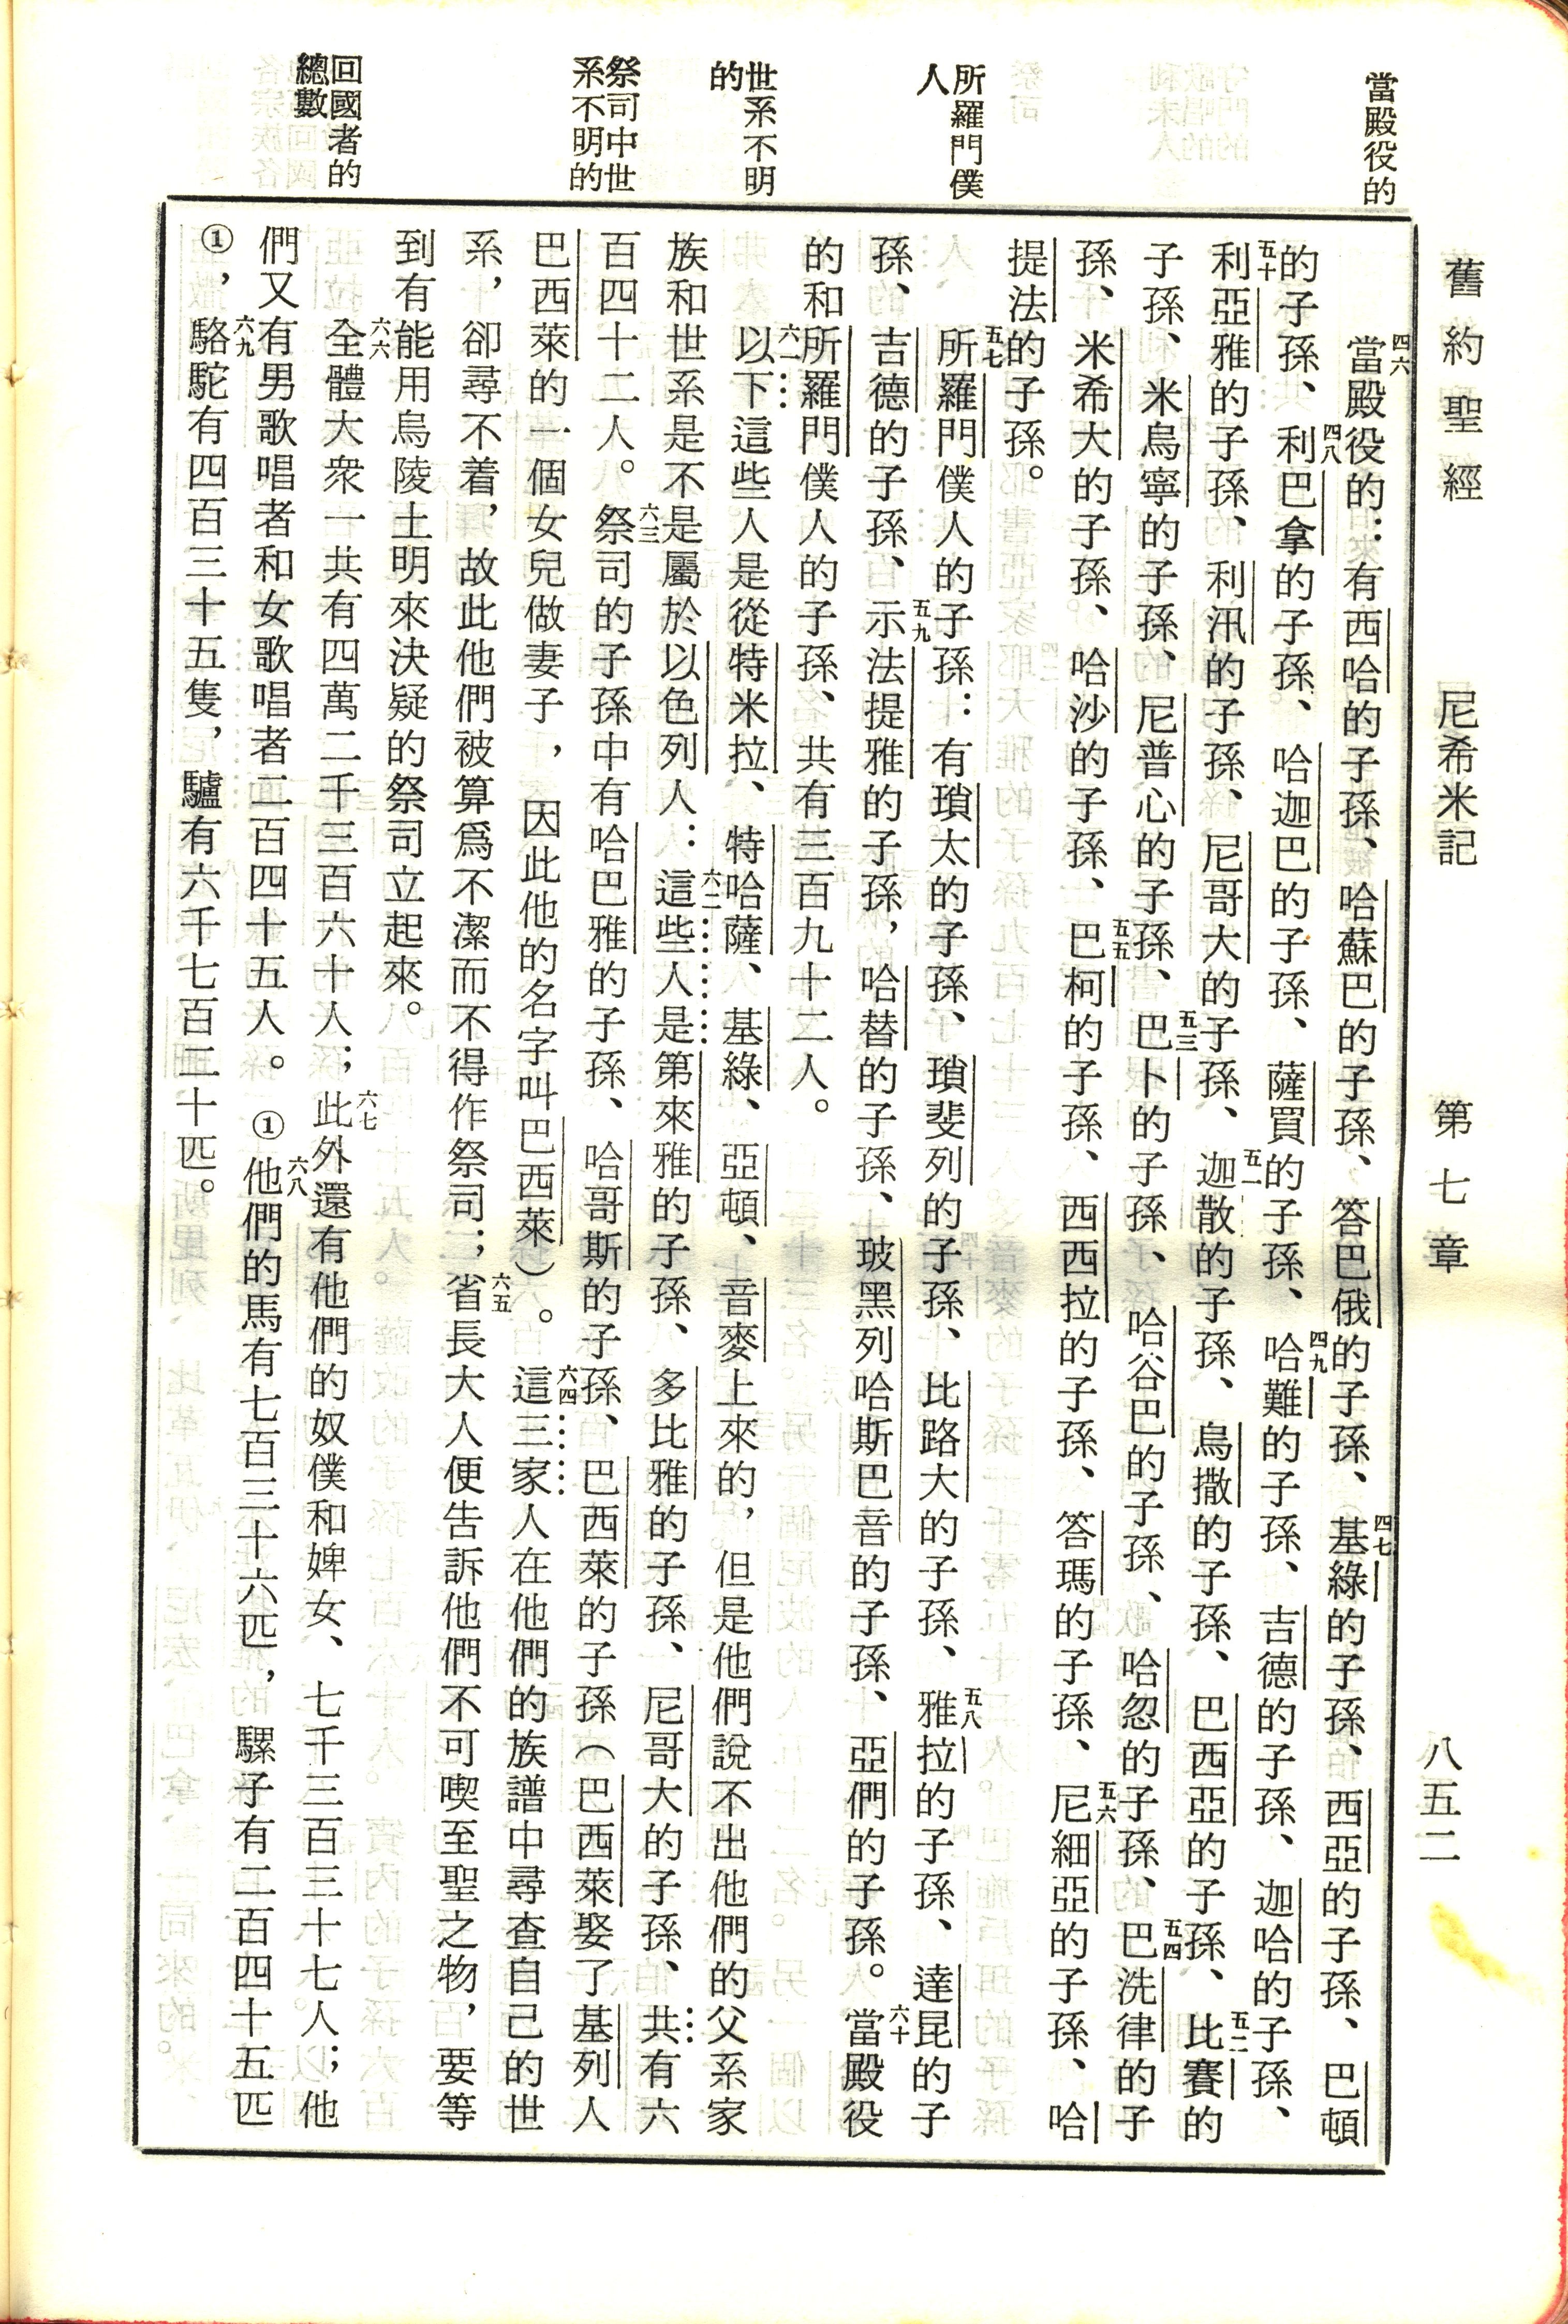 舊約聖經 尼希米記 第七章 八五二
當殿役的
所羅門僕
人
世系不明
的
祭司中世
系不明的
回國者的
總數
四六當殿役的：有西哈的子孫、哈蘇巴的子孫、答巴俄的子孫、四七基綠的子孫、西亞的子孫、巴頓
的子孫、四八利巴拿的子孫、哈迦巴的子孫、薩買的子孫、四九哈難的子孫、吉德的子孫、迦哈的子孫、
五十利亞雅的子孫、利汛的子孫、尼哥大的子孫、五一迦散的子孫、烏撒的子孫、巴西亞的子孫、五二比賽的
子孫、米烏寧的子孫、尼普心的子孫、五三巴卜的子孫、哈谷巴的子孫、哈忽的子孫、五四巴洗律的子
孫、米希大的子孫、哈沙的子孫、五五巴柯的子孫、西西拉的子孫、答瑪的子孫、五六尼細亞的子孫、哈
提法的子孫。
五七所羅門僕人的子孫：有瑣太的子孫、瑣斐列的子孫、比路大的子孫、五八雅拉的子孫、達昆的子
孫、吉德的子孫、五九示法提雅的子孫，哈替的子孫、玻黑列哈斯巴音的子孫、亞們的子孫。六十當殿役
的和所羅門僕人的子孫、共有三百九十二人。
六一以下這些人是從特米拉、特哈薩、基綠、亞頓、音麥上來的，但是他們說不出他們的父系家
族和世系是不是屬於以色列人：六二這些人是第來雅的子孫、多比雅的子孫、尼哥大的子孫、共有六
百四十二人。六三祭司的子孫中有哈巴雅的子孫、哈哥斯的子孫、巴西萊的子孫（巴西萊娶了基列人
巴西萊的一個女兒做妻子，因此他的名字叫巴西萊）。六四這三家人在他們的族譜中尋查自己的世
系，卻尋不着，故此他們被算爲不潔而不得作祭司；六五省長大人便告訴他們不可喫至聖之物，要等
到有能用烏陵土明來決疑的祭司立起來。
六六全體大衆一共有四萬二千三百六十人；六七此外還有他們的奴僕和婢女、七千三百三十七人；他
們又有男歌唱者和女歌唱者二百四十五人。①六八他們的馬有七百三十六匹，騾子有二百四十五匹
①，六九駱駝有四百三十五隻，驢有六千七百二十匹。